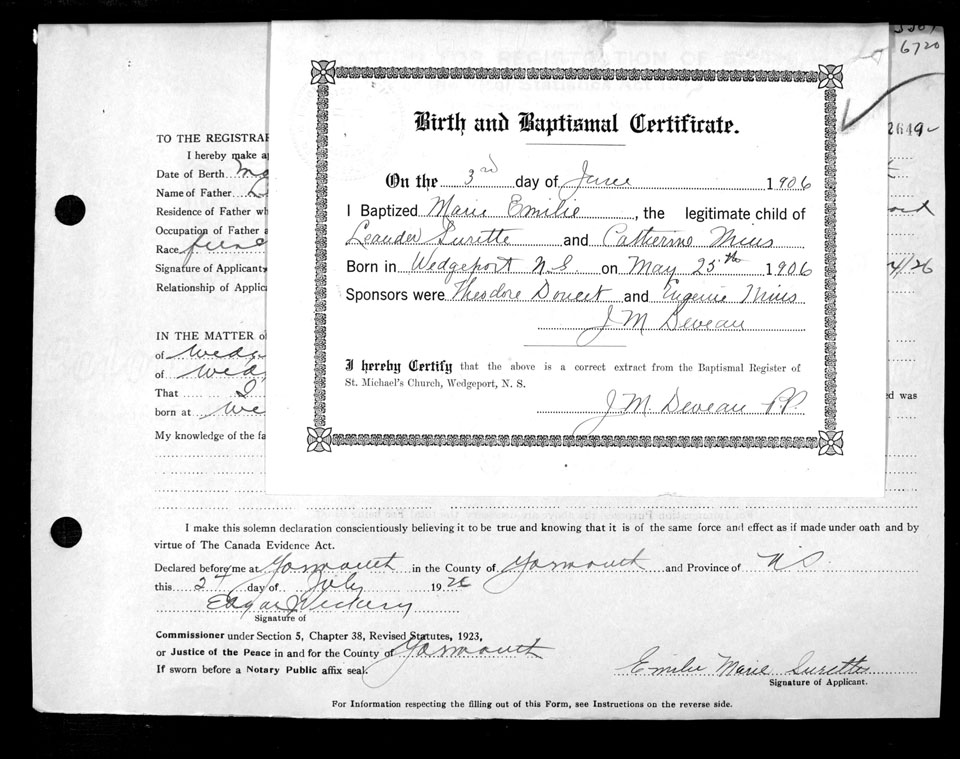 6720
2649
Birth and Baptismal Certificate.
On the 3rd day of June 1906
I Baptized Marie Emilie, the legitimate child of
Leander Surette and Catherine Mius
Born in Wedgeport N.S. on May 25th 1906
Sponsors were Theodore Doucet and Eugenie Mius
J M Deveau
I hereby Certify that the above is a correct extract from the Baptismal Register of
St. Michael's Church, Wedgeport, N. S.
J M Deveau P.P.
TO THE REGISTRAR
I hereby make
Date of Birth
Name of Father
Residence of Father
Occupation of Father
Race
Signature of Applicant
Relationship of
IN THE MATTER
of
of
That I
born at
ed was
My knowledge of the
I make this solemn declaration conscientiously believing it to be true and knowing that it is of the same force and effect as if made under oath and by
virtue of The Canada Evidence Act.
Declared before me at Yarmouth in the County of Yarmouth and Province of N S.
this 24 day of July 1926
Edgar J Vickery
Signature of
Commissioner under Section 5, Chapter 38, Revised Statutes, 1923,
or Justice of the Peace in and for the County of Yarmouth
If sworn before a Notary Public affix seal.
Emilie Marie Surette
Signature of Applicant.
For Information respecting the filling out of this Form, see Instructions on the reverse side.